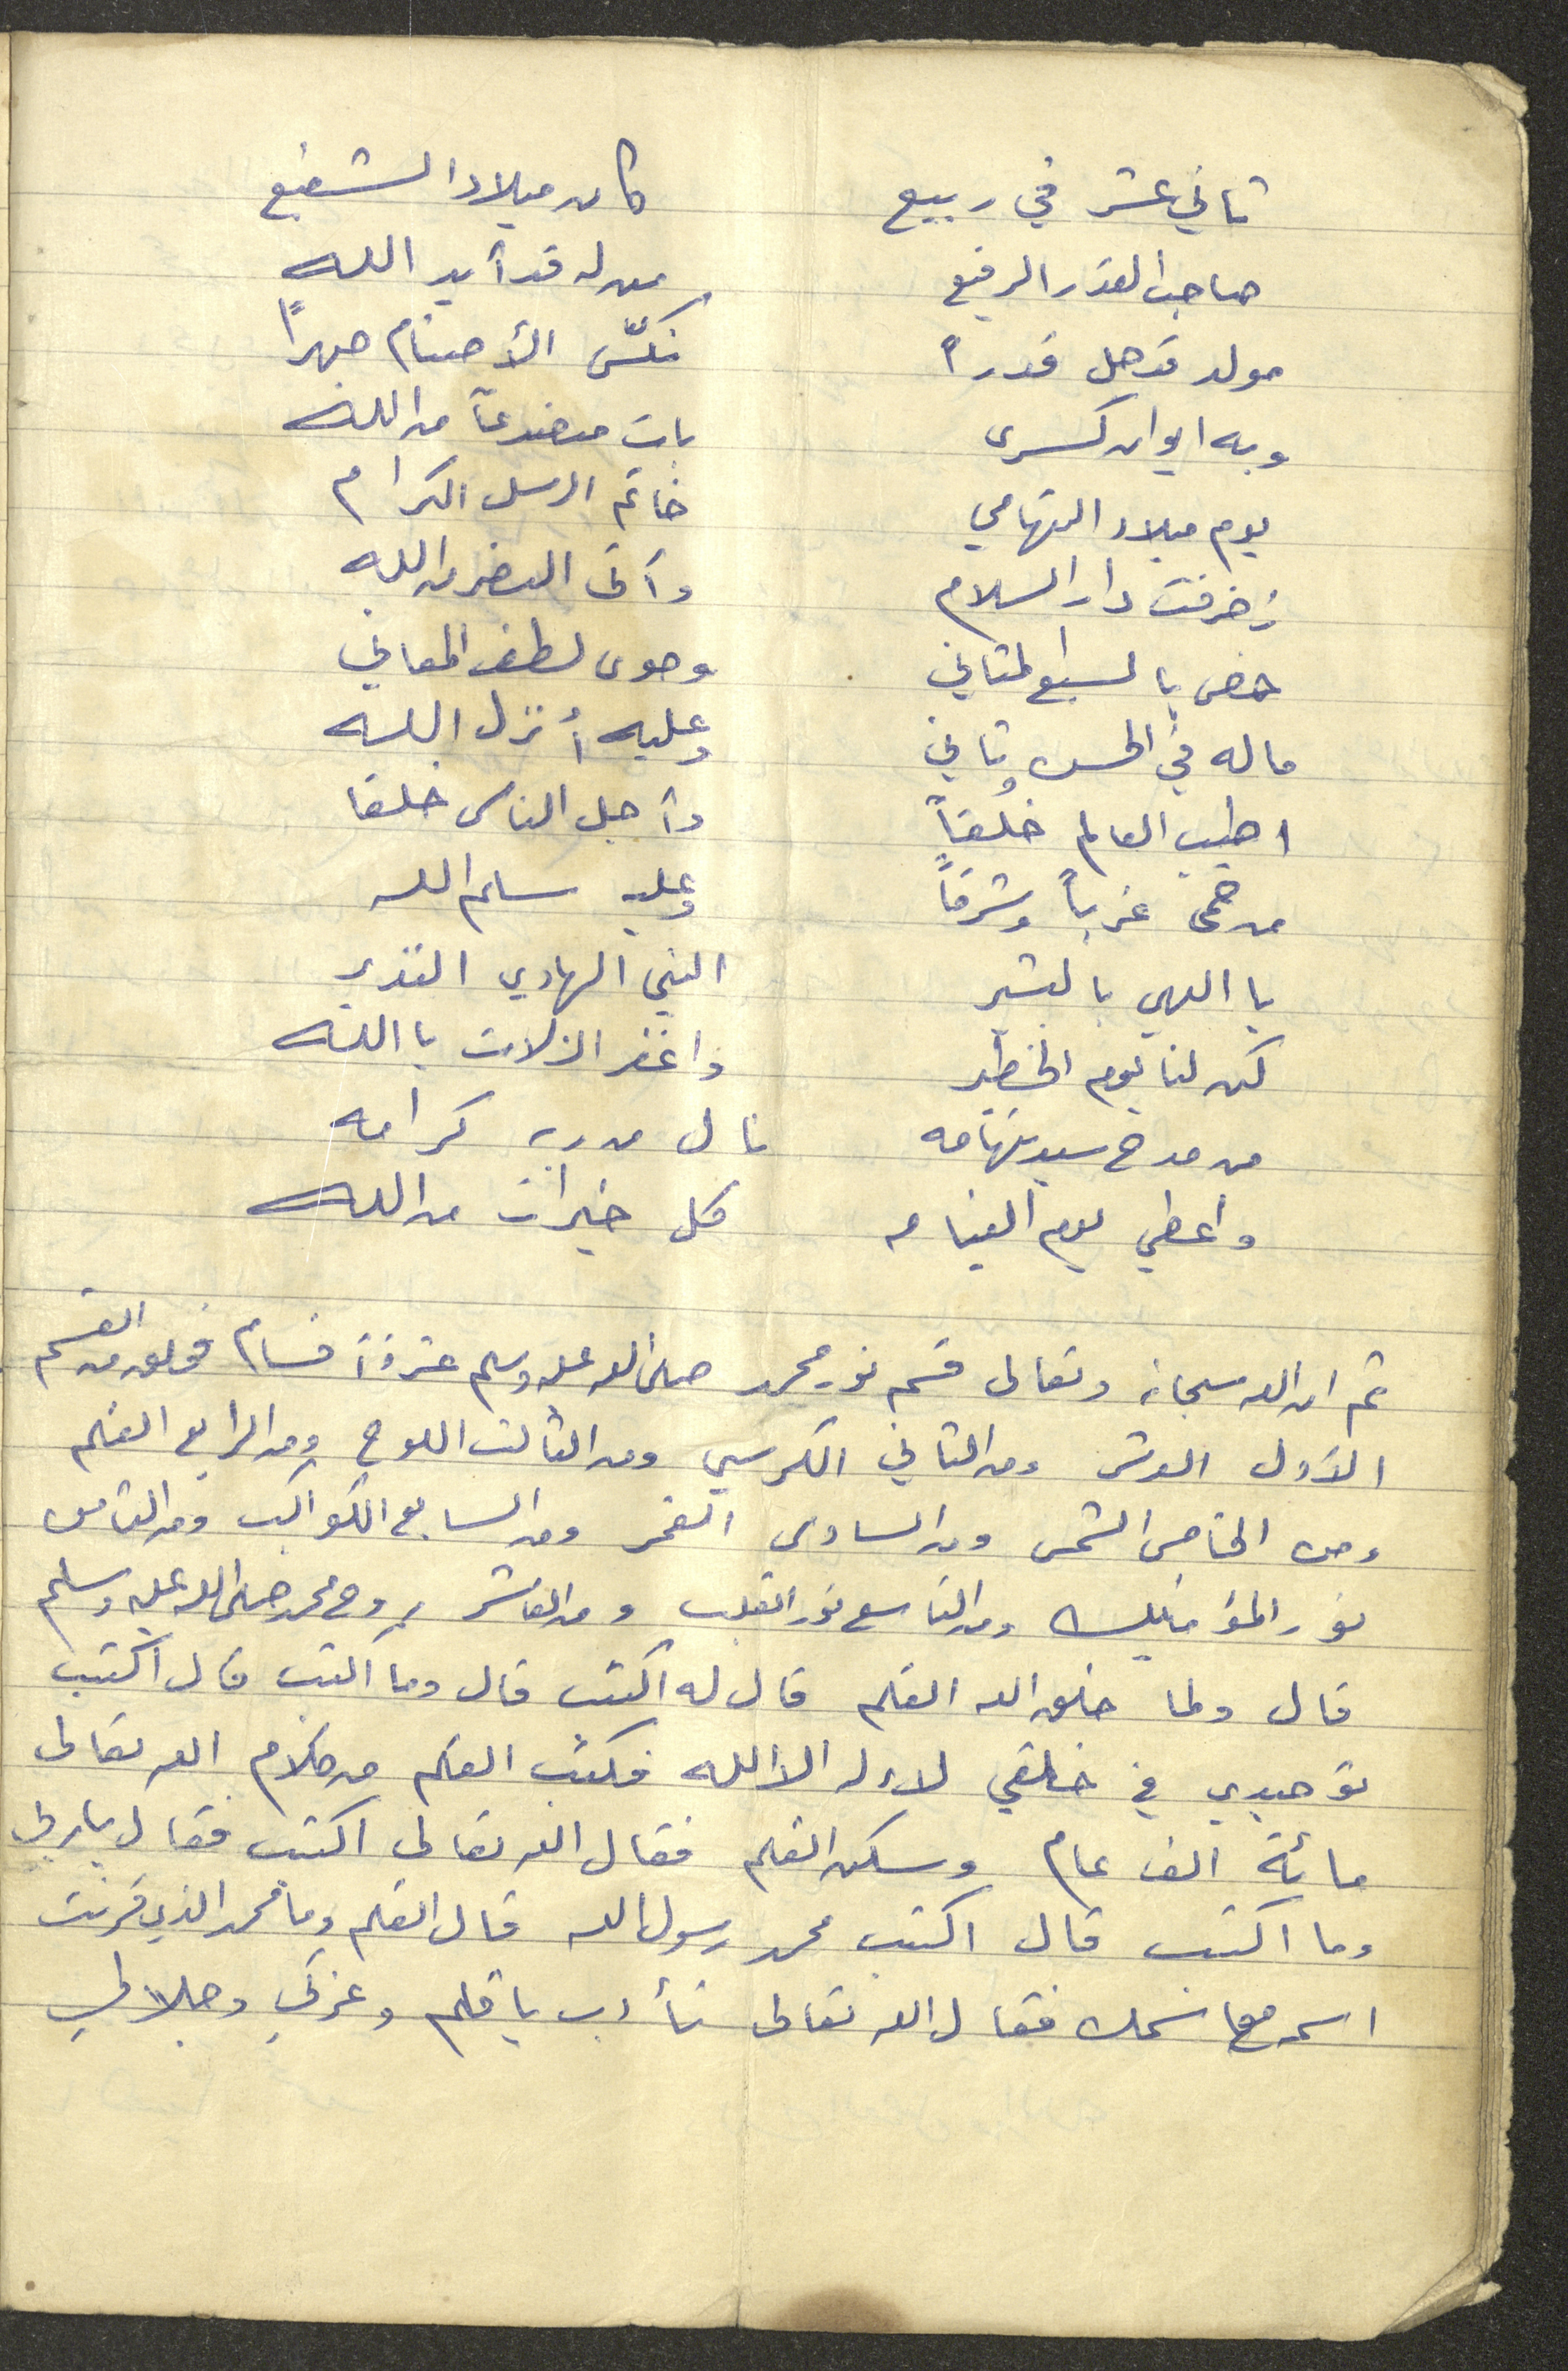 ثاني عشر في ربيع كان ميلاد الشفيع
صاحب القدر الرفيع من له قد أيد الله
مولد قد جل قدراً نكّس الأصنام جهراً
وبه ايوان كسرى بات منصدعاً من الله
يوم ميلاد التهامي خاتم الرسل الكرام
زخرفت دار السلام وأتى النصر من الله
خص بالسبع المثاني وحوى لطف المعاني
ما له في الحسن ثاني وعليه أُنزل الله
اطيب العالم خُلقاً وأجل الناس خلقا
من حمى غرباً وشرقاً وعليه سلم الله
يا الهي بالبشير النبي الهادي النذير
كن لنا يوم الخطير واغفر الزلات يا الله
من مدح سيد تهامه نال من ربه كرامه
واعطي يوم القيامه كل خيرات من الله
ثم ان الله سبحانه وتعالى قسم نور محمد صلى الله عليه وسلم عشرة أقسام فخلق من القسم
الأول العرش ومن الثاني الكرسي ومن الثالث اللوح ومن الرابع القلم
ومن الخامس الشمس ومن السادس القمر ومن السابع الكواكب ومن الثامن
نور المؤمنين ومن التاسع نور القلب ومن العاشر روح محمد صلى الله عليه وسلم
قال ولما خلق الله القلم قال له اكتب قال وما اكتب قال اكتب
توحيدي في خلقي لا اله الا الله فكتب القلم من كلام الله تعالى
مائة الف عام وسكن القلم فقال الله تعالى اكتب فقال يا ربي
وما اكتب قال اكتب محمد رسول الله قال القلم وما محمد الذي قرنت
اسمه مع اسمك فقال الله تعالى تأدب يا قلم وعزتي وجلالي